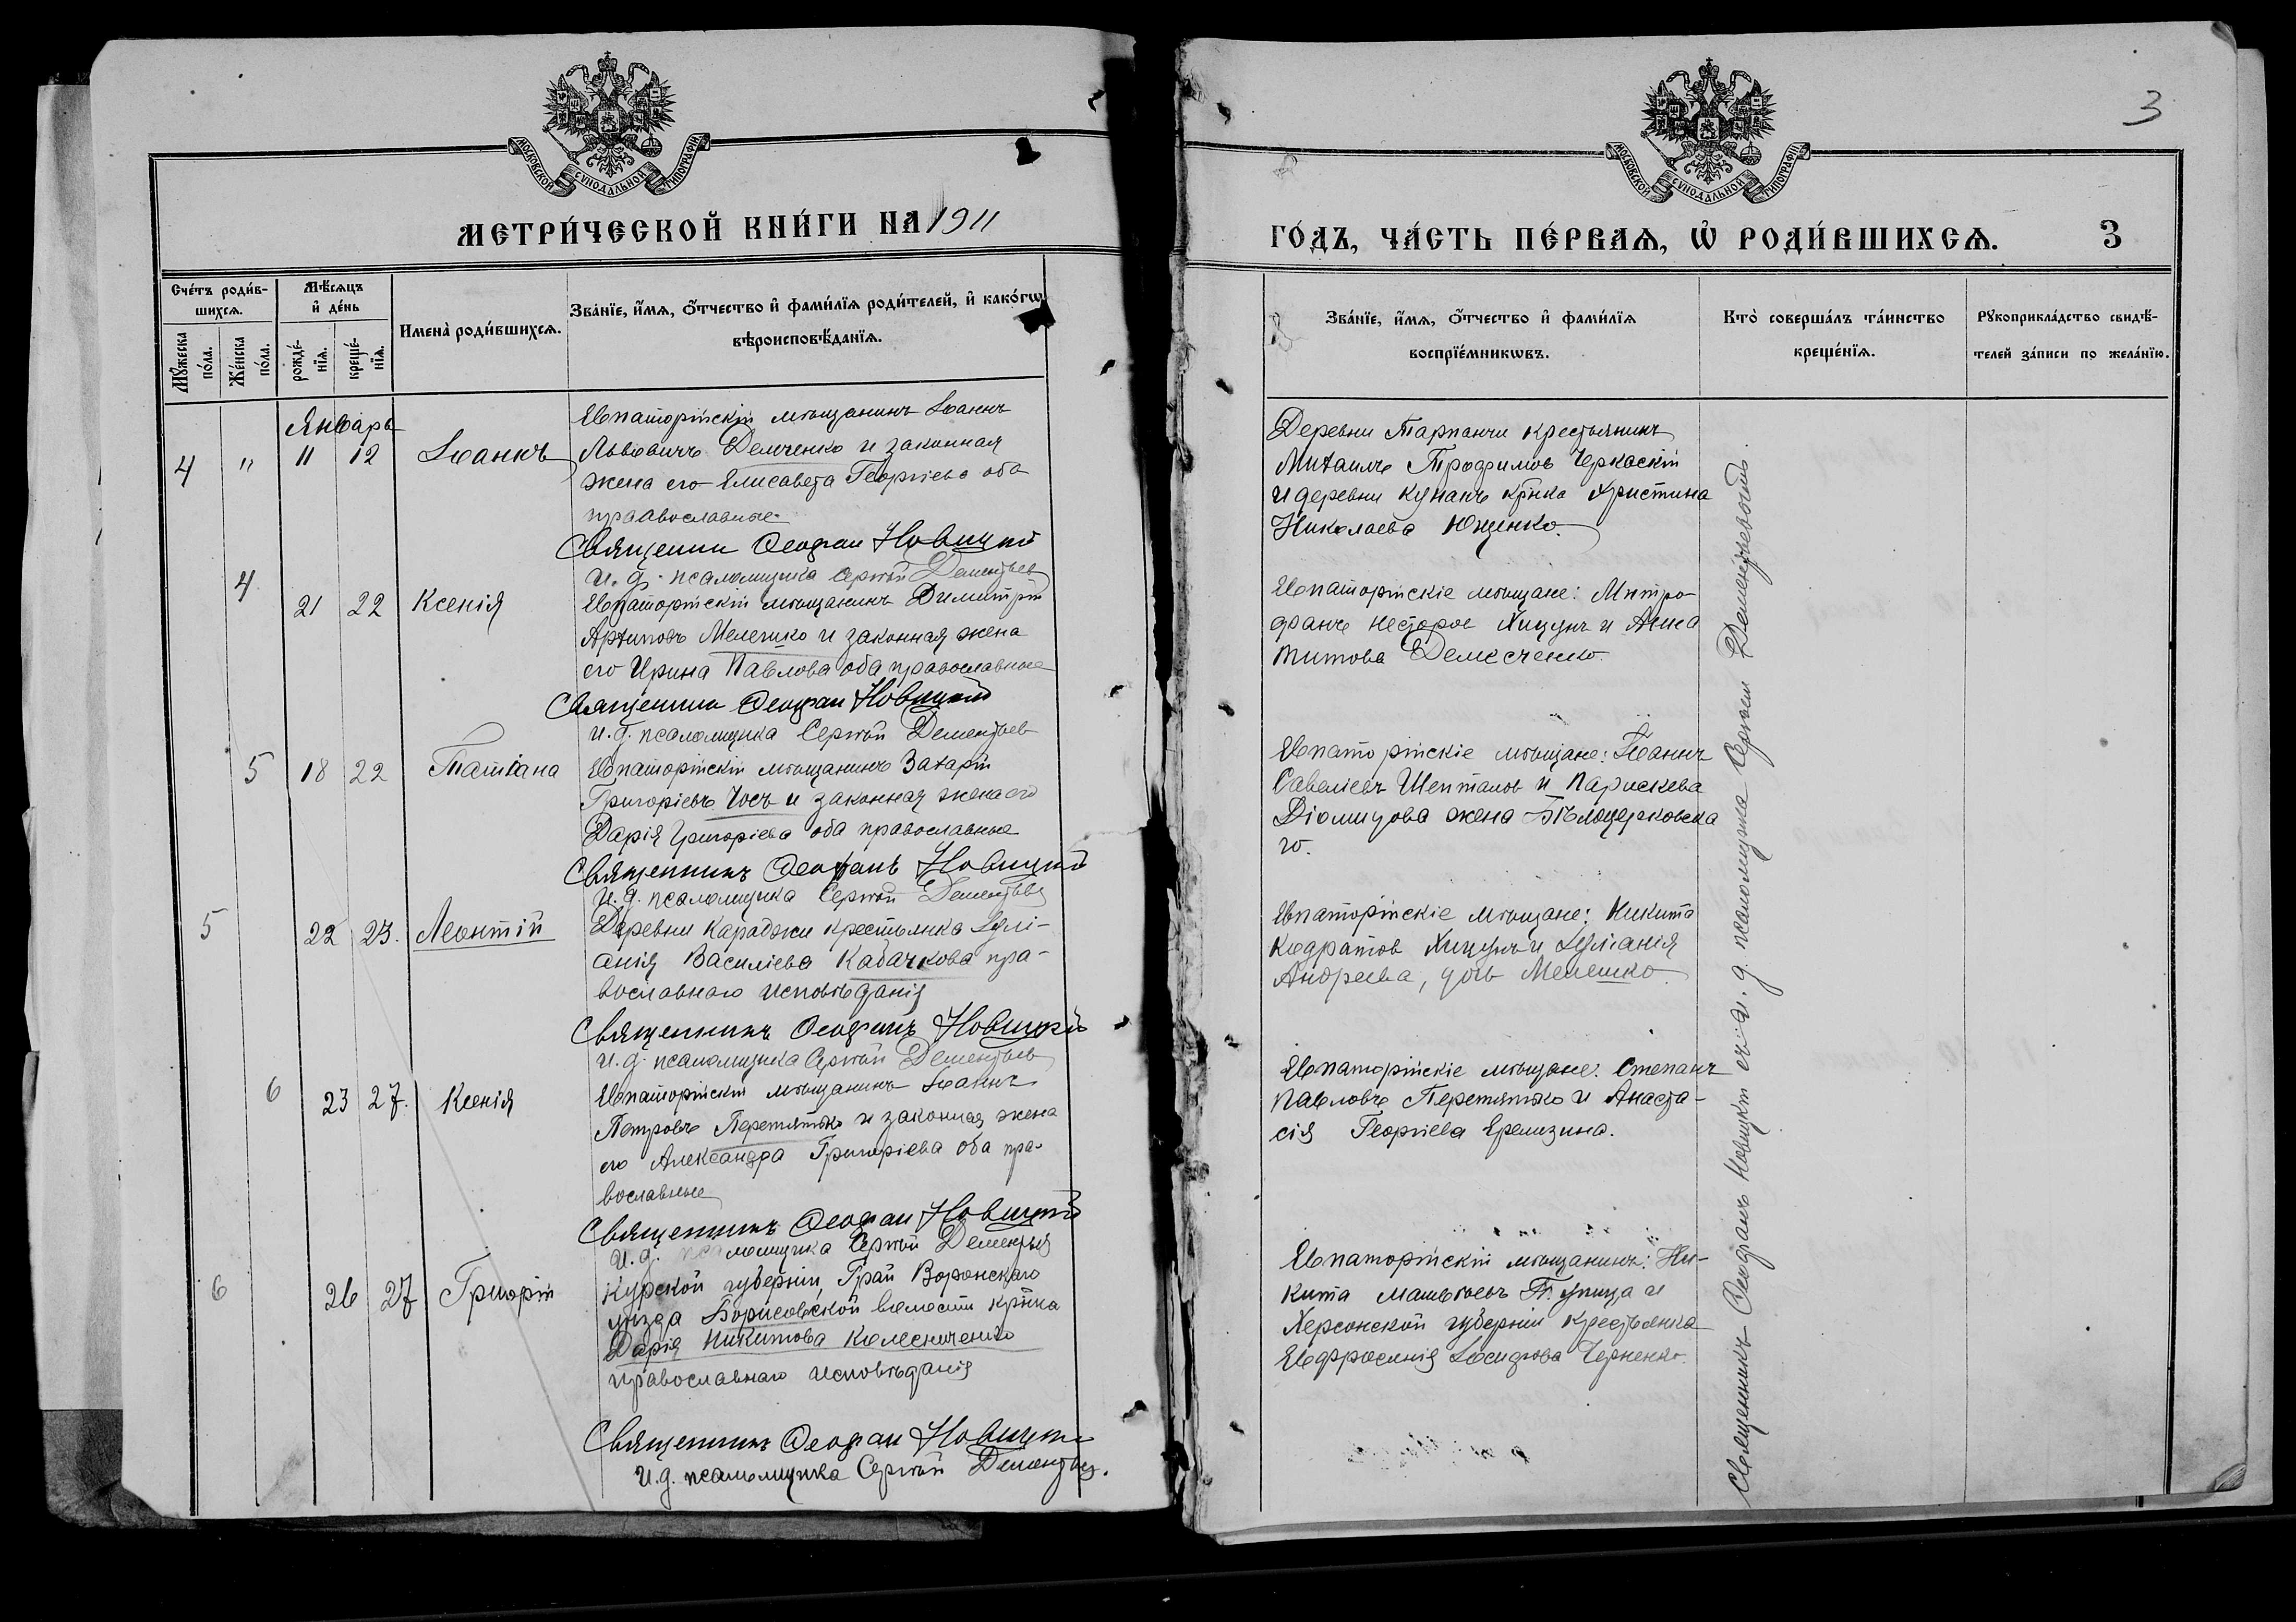 МОСКОВСКОЙ СУНОДАЛЬНОЙ ТИПОГРАФІИ
МЕТРИ́ЧЕСКОЙ КНИ́ГИ НА 1911
Сче́тъ роди́в-
шихсѧ.
Мѣ́сѧцъ
и҆ де́нь
Мꙋ́жеска
по́ла.
Же́нска
по́ла.
рожде́-
нїѧ.
креще́-
нїѧ.
Имена̀ роди́вшихсѧ.
Зва́нїе, и҆́мѧ, ѻ҆́тчество и҆ фами́лїѧ роди́телей, и҆ како́гѡ
вѣроисповѣ́данїѧ.
Январь
4 " 11 12 Іоаннъ
Евпаторійскій мѣщанинъ Іоаннъ
Львовичъ Демченко и законная
жена его Елисавета Георгіева оба
православные
Священник Феофан Новицкій
И. д. псаломщика Сергѣй Дементьев
4 21 22 Ксенія
Евпаторійскій мѣщанинъ Димитрій
Архиповъ Мелешко и законная жена
его Ирина Павлова оба православные
Священник Феофан Новицкій
И. д. псаломщика Сергѣй Дементьев
5 18 22 Татіана
Евпаторійскій мѣщанинъ Захарій
Григоріевъ Чосъ и законная жена его
Дарія Григоріева оба православные
Священникъ Феофанъ Новицкій
И. д. псаломщика Сергѣй Дементьев
5 22 23. Леонтій
Деревни Караджи крестьянка Іулі-
анія Василіева Кабачкова пра-
вославнаго исповѣданія
Священникъ Феофанъ Новицкій
И. д. псаломщика Сергѣй Дементьев
6 23 27. Ксенія
Евпаторійскій мѣщанинъ Іоаннъ
Петровъ Перетятько и законная жена
его Александра Григоріева оба пра-
вославные
Священникъ Феофан Новицкій
И. д. псаломщика Сергѣй Дементьев
6 26 27 Григорій
Курской губерніи, Грай Воронскаго
уѣзда Борисовской волости кр‑нка
Дарія Никитова Колесниченко
православнаго исповѣданія
Священникъ Феофан Новицкій
И. д. псаломщика Сергѣй Дементьев.
3
МОСКОВСКОЙ СУНОДАЛЬНОЙ ТИПОГРАФІИ
ГО́ДЪ, ЧА́СТЬ ПЕ́РВАѦ, Ѡ҆ РОДИ́ВШИХСѦ. 3
Зва́нїе, и҆́мѧ, ѻ҆́тчество и҆ фами́лїѧ
воспрїе́мникѡвъ.
Кто̀ соверша́лъ та́инство
креще́нїѧ.
Рꙋкоприкла́дство свидѣ́-
телей за́писи по жела́нїю.
Деревни Тарпанчи крестьянинъ
Михаилъ Трофимов Черкаскій
и деревни Кунанъ кр‑нка Христина
Николаева Ющенко.
Евпаторійскіе мѣщане: Митро-
фанъ Несторов Хицунъ и Анна
Титова Демесченко.
Евпаторійскіе мѣщане: Іоаннъ
Савеліевъ Шепталов и Параскева
Діомидова жена Бѣлоцерковска
го.
Евпаторійскіе мѣщане: Никита
Кодратов Хицунъ и Іуліанія
Андреева, дочь Мелешко.
Евпаторійскіе мѣщане: Степанъ
Павловъ Перетятько и Анаста-
сія Георгіева Еремизина.
Евпаторійскій мѣщанинъ: Ни-
кита Матвѣевъ и
Херсонской губерніи крестьянка
Евфросинія Іосифова Черненко.
Священникъ Феофанъ Новицкій съ и. д. псаломщика Сергѣем Дементьевымъ